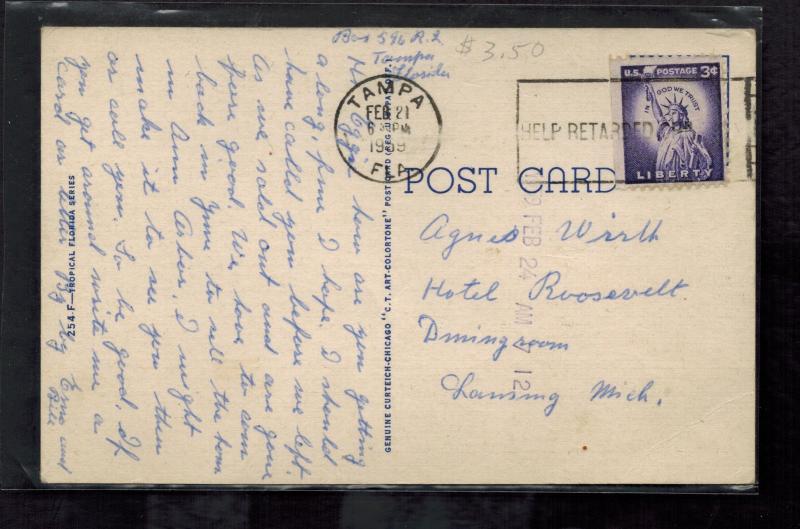 Box 596 R.2
Tampa
Florida
$3.50
TAMPA
FEB 21
6 PM
1959
FLA
HELP RETARDED
U.S. POSTAGE 3¢
IN GOD WE TRUST
LIBERTY
POST CARD
9 FEB 24 AM 7 12
Agnes Wirth
Hotel Roosevelt
Diningroom
Lansing Mich.
how are you getting
a long, fine I hope. I should
have called you before we left.
as we sold out and are gone
fore good. We have to com
back in June to sell the hom
in Ann Arbor, I might
make it to see you then
or call you. So be good. If
you get around write me a
card or letter By By
Erna and
Bill
GENUINE CURTEICH-CHICAGO "C.T. ART-COLORTONE" POST CARD (REG. U.S. PAT. OFF.)
254 F—TROPICAL FLORIDA SERIES